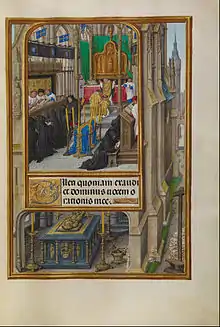 ilexi quoniam exaudi
et dominus uocem o
rationis mee.